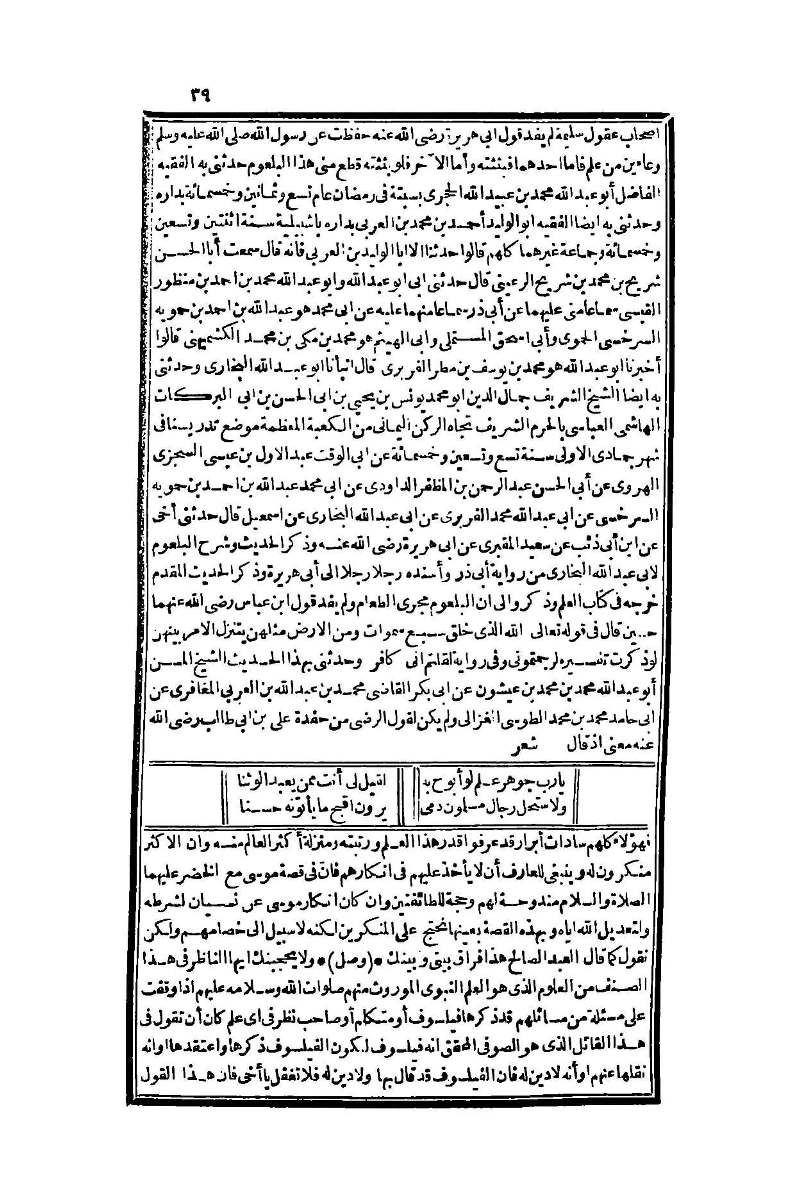 ٣٩
اصحاب عقول سليمة لم يفد قول ابى هريرة رضى الله عنه حفظت عن رسول الله صلى الله عليه وسلم
وعاءين من علم فاما احدهما فبثثته وأما الآخر فلو بثثته قطع منى هذا البلعوم حدثنى به الفقيه
الفاضل أبو عبد الله محمد بن عبيد الله الحجرى بسبتة فى رمضان عام تسع وثمانين وخمسمائة بداره
وحدثنى به ايضا الفقيه ابو الوليد أحمد بن محمد بن العربى بداره باشبيلية سنة اثنتين وتسعين
وخمسمائة وجماعة غيرهما كلهم قالوا حدثنا الا ابا الوليد بن العربى فانه قال سمعت أبا الحسن
شريح بن محمد بن شريح الرعينى قال حدثنى ابى ابو عبد الله وابو عبد الله محمد بن احمد بن منظور
القيسى سماعا منى عليهما عن أبى ذر سماعا منهما عليه عن ابى محمد هو عبد الله بن احمد بن حمويه
السرخسى الحموى وأبى اسحق المستملى وابى الهيثم هو محمد بن مكى بن محمد الكشميهنى قالوا
أخبرنا ابو عبد الله هو محمد بن يوسف بن مطر الفربرى قال انبأنا ابو عبد الله البخارى وحدثنى
به ايضا الشيخ الشريف جمال الدين ابو محمد يونس بن يحيى بن ابى الحسن بن ابى البركات
الهاشمى العباسى بالحرم الشريف تجاه الركن اليمانى من الكعبة المعظمة موضع تدريسنا فى
شهر جمادى الاولى سنة تسع وتسعين وخمسمائة عن ابى الوقت عبد الاول بن عيسى السجزى
الهروى عن أبى الحسن عبد الرحمن بن المظفر الداودى عن ابى محمد عبد الله بن احمد بن حمويه
السرخسى عن ابى عبد الله محمد الفربرى عن ابى عبد الله البخارى عن اسمعيل قال حدثنى أخى
عن ابن أبى ذئب عن سعيد المقبرى عن ابى هريرة رضى الله عنه وذكر الحديث وشرح البلعوم
لابى عبد الله البخارى من رواية أبى ذر وأسنده رجلا رجلا الى أبى هريرة وذكر الحديث المقدم
خرجه فى كتاب العلم وذكروالى ان البلعوم مجرى الطعام ولم يفد قول ابن عباس رضى الله عنهما
حين قال فى قوله تعالى الله الذى خلق سبع سموات ومن الارض مثلهن يتنزل الامر بينهن
لو ذكرت تفسيره لرجمتونى وفى رواية لقلتم انى كافر وحدثنى بهذا الحديث الشيخ المسن
أبو عبد الله محمد بن محمد بن عيشون عن ابى بكر القاضى محمد بن عبد الله بن العربى المغافرى عن
ابى حامد محمد بن محمد الطوسى الغزالى ولم يكن لقول الرضى من حفدة على بن ابى طالب رضى الله
عنه معنى اذ قال شعر
يا رب جوهر علم لو أبوح به لقيل لى أنت ممن يعبد الوثنا
ولا ستحل رجال مسلمون دمى يرون اقبح ما يأتونه حسنا
فهؤلاء كلهم سادات أبرار قد عرفوا قدر هذا العلم ورتبته ومنزلة أكثر العالم منه وان الاكثر
منكرون له وينبغى للعارف أن لا يأخذ عليهم فى انكارهم فان فى قصة موسى مع الخضر عليهما
الصلاة والسلام مندوحة لهم وحجة للطائفتين وان كان انكار موسى عن نسيان لشرطه
ولتعديل الله اياه وبهذه القصة بعينها نحتج على المنكرين لكنه لا سبيل الى خصامهم ولكن
نقول كما قال العبد الصالح هذا فراق بينى وبينك *(وصل)* ولا يحجبنك ايها الناظر فى هذا
الصنف من العلوم الذى هو العلم النبوى الموروث منهم صلوات الله وسلامه عليهم اذا وقفت
على مسئلة من مسائلهم قد ذكرها فيلسوف أو متكلم أو صاحب نظر فى اى علم كان أن تقول فى
هذا القائل الذى هو الصوفى المحقق انه فيلسوف لكون الفيلسوف ذكرها واعتقدها وانه
نقلها عنهم او أنه لا دين له فان الفيلسوف قد قال بها ولا دين له فلا تغفل يا أخى فان هذا القول